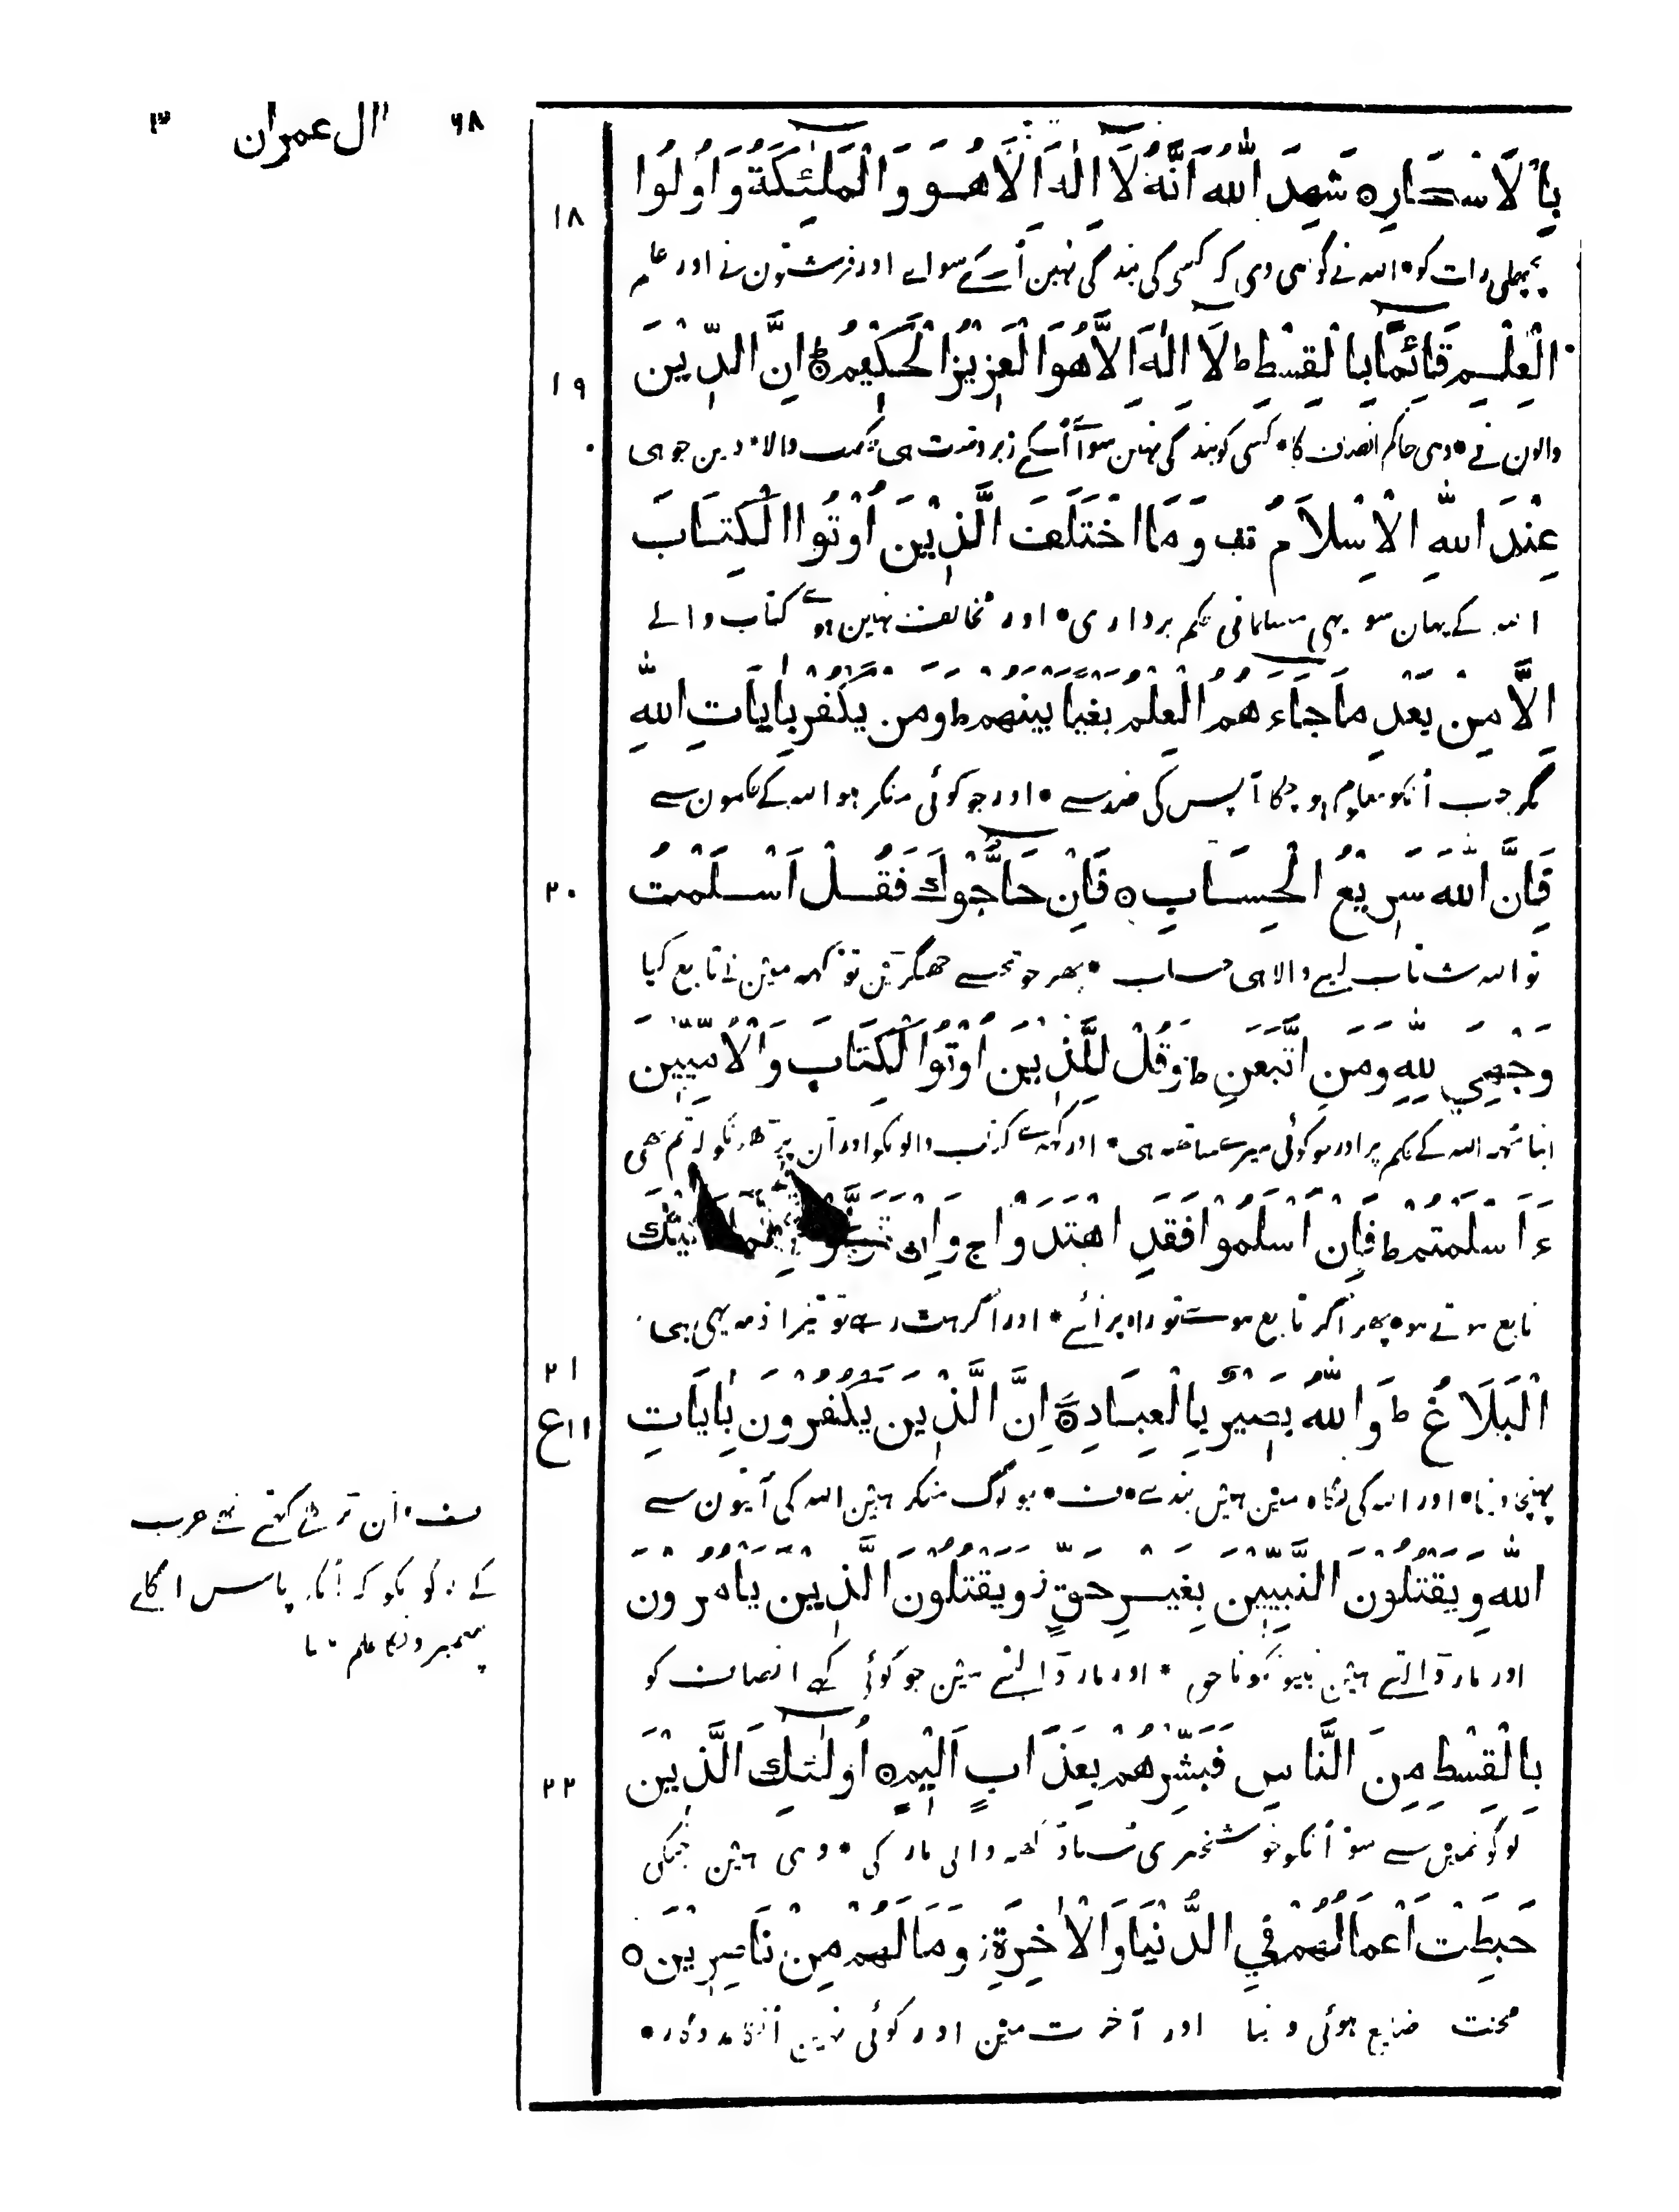 ٦٨ اٰل عمران ٣
بِالْاَسْحَارِ ○ شَهِدَ اللّٰهُ اَنَّهٗ لَآ اِلٰهَ اِلَّا هُوَ وَالْمَلٰٓئِكَةُ وَاُولُوا
١٨
پچھلی رات کو * اللہ نے گواہی دی کہ کسی کی بندگی نہین اُسکے سواے اور فرشتون نے اور علم
الْعِلْمِ قَآئِمًۢا بِالْقِسْطِ ط لَآ اِلٰهَ اِلَّا هُوَ الْعَزِيْزُ الْحَكِيْمُ ○ط اِنَّ الدِّيْنَ
١٩
والون نے * وہی حاکم انصاف کا * کسی کو بندگی نہین سوآ اُسکے زبردست ہی حکمت والا * دین جو ہی
عِنْدَ اللّٰهِ الْاِسْلَامُ قف وَمَا اخْتَلَفَ الَّذِيْنَ اُوْتُوا الْكِتَابَ
اللہ کے یہان سو یہی مسلمانی حکم برداری * اور مخالف نہین ہوے کتاب والے
اِلَّا مِنْۢ بَعْدِ مَا جَآءَهُمُ الْعِلْمُ بَغْيًۢا بَيْنَهُمْ ط وَمَنْ يَكْفُرْ بِاٰيَاتِ اللّٰهِ
مگر جب اُنکو معلوم ہو چکا آپس کی ضد سے * اور جو کوئی منکر ہو اللہ کے حکمون سے
فَاِنَّ اللّٰهَ سَرِيْعُ الْحِسَابِ ○ فَاِنْ حَآجُّوْكَ فَقُلْ اَسْلَمْتُ
٢٠
تو اللہ شتاب لینے والا ہی حساب * پھر جو تجھسے جھگڑین تو کہہ مین نے تابع کیا
وَجْهِيَ لِلّٰهِ وَمَنِ اتَّبَعَنِ ط وَقُلْ لِلَّذِيْنَ اُوْتُوا الْكِتَابَ وَالْاُمِّيّٖنَ
اپنا منہہ اللہ کے حکم پر اور جو کوئی میرے ساتھہ ہی * اور کہہ کتاب والونکو اور اَن پڑھونکو کہ تم بھی
ءَاَسْلَمْتُمْ ط فَاِنْ اَسْلَمُوْا فَقَدِ اهْتَدَوْا ج وَاِنْ عَلَيْكَ
تابع ہوتے ہو * پھر اگر تابع ہوے تو راہ پر آئے * اور اگر ہٹ رہے تو تیرا ذمہ یہی ہی
٢١
الْبَلَاغُ ط وَاللّٰهُ بَصِيْرٌۢ بِالْعِبَادِ ○ع اِنَّ الَّذِيْنَ يَكْفُرُوْنَ بِاٰيَاتِ
١١ع
پہنچا دینا * اور اللہ کی نگاہ مین ہین بندے * ف * جو لوگ منکر ہین اللہ کی آیتون سے
اللّٰهِ وَيَقْتُلُوْنَ النَّبِيّٖنَ بِغَيْرِ حَقٍّ ز وَيَقْتُلُوْنَ الَّذِيْنَ يَاْمُرُوْنَ
اور مار ڈالتے ہین نبیونکو ناحق * اور مار ڈالتے ہین جو کوئی کہے انصاف کو
بِالْقِسْطِ مِنَ النَّاسِ فَبَشِّرْهُمْ بِعَذَابٍ اَلِيْمٍ ○ اُولٰٓئِكَ الَّذِيْنَ
٢٢
لوگونمین سے سو اُنکو خوشخبری سنا دکھہ والی مار کی * وہی ہین جنکی
حَبِطَتْ اَعْمَالُهُمْ فِي الدُّنْيَا وَالْاٰخِرَةِ ز وَمَا لَهُمْ مِّنْ نَّاصِرِيْنَ ○
محنت ضایع ہوئی دنیا اور آخرت مین اور کوئی نہین اُنکا مددگار *
ف * اَن پڑھے کہتے تھے عرب
کے لوگونکو کہ اُنکے پاس اگلے
پیغمبرونکا علم نہ تھا